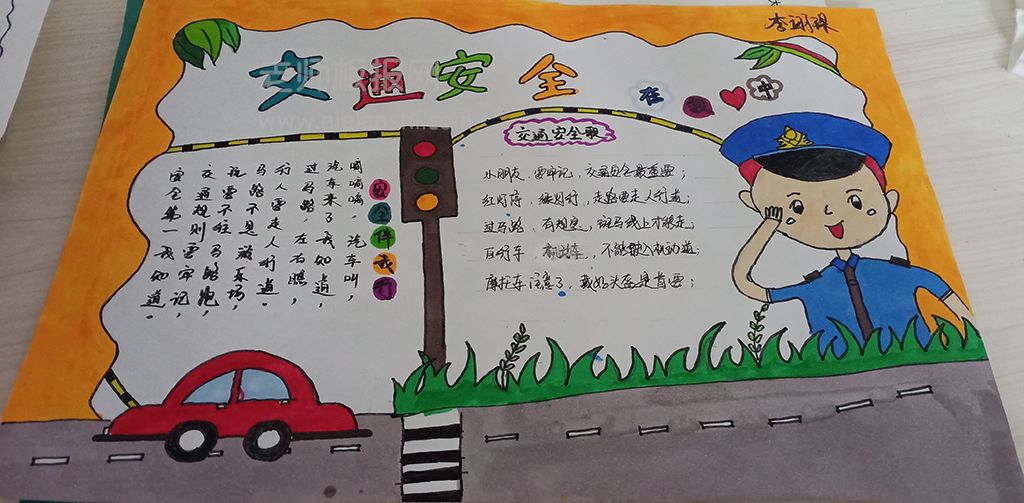 交通安全
在我心中
交通安全歌
小朋友，要牢记，交通安全最重要；
红灯停，绿灯行，走路要走人行道；
过马路，有规定，斑马线上才能走；
自行车，
，不能驶入机动道；
摩托车
，戴好头盔是首要；
安全伴我行
嘀嘀嘀，汽车叫，
汽车来了，我知道，
过马路，左右瞧，
行人要走人行道。
马路不是游乐场，
说要不在马路跑，
交通规则要牢记，
安全第一我知道。